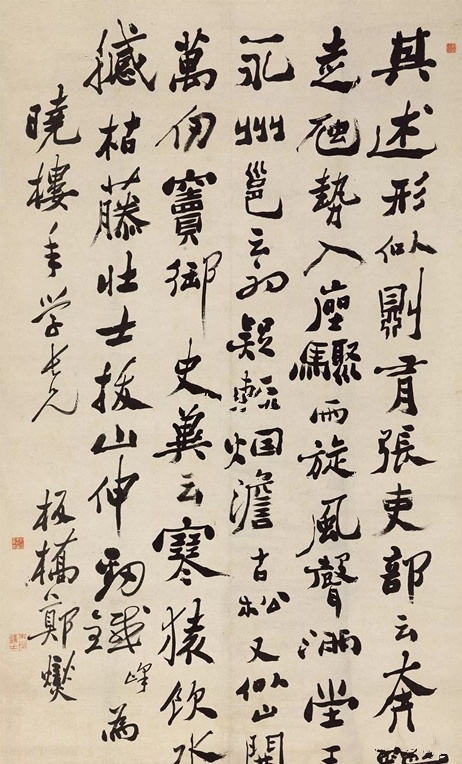 其述形似則有張吏部云奔
走虺勢入座驟雨旋風聲滿堂王
永州邕云初疑輕烟澹古松又似山開
萬仞竇御史冀云寒猿飲水
撼枯藤壯士拔山伸勁鐵 峰 為
曉樓年学老兄 板橋鄭燮